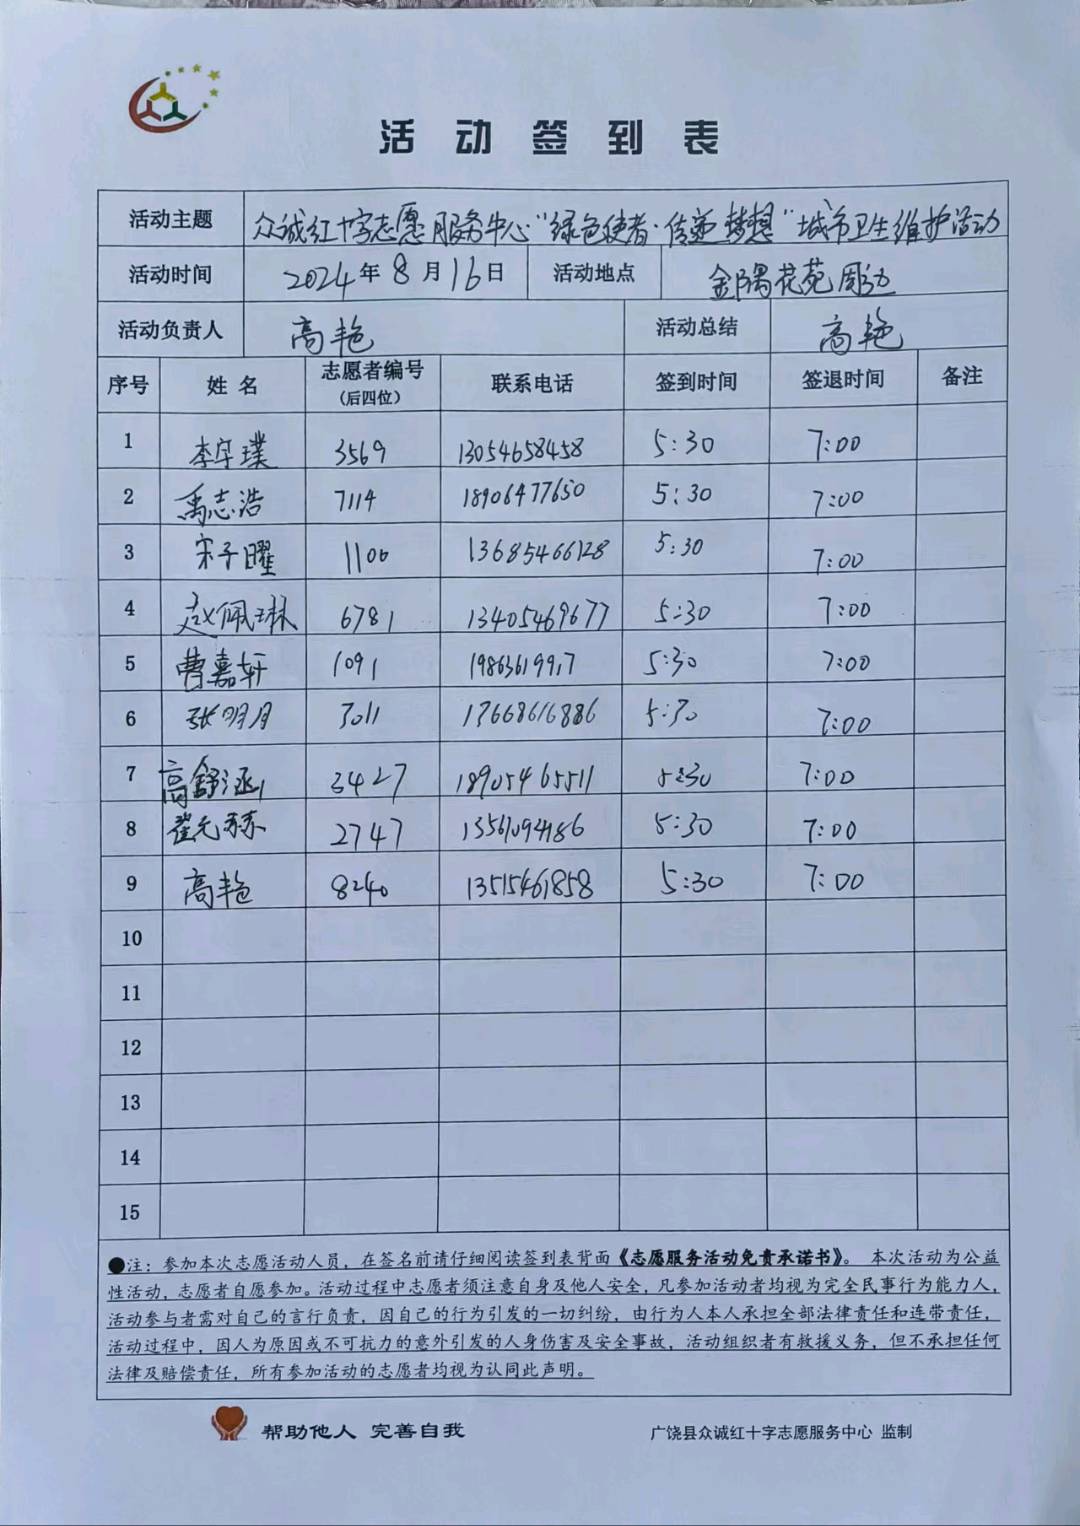 活动签到表
活动主题 众诚红十字志愿服务中心“绿色使者·传递梦想”城市卫生维护活动
活动时间 2024年8月16日 活动地点 金隅花苑周边
活动负责人 高艳 活动总结 高艳
序号 姓名 志愿者编号（后四位） 联系电话 签到时间 签退时间 备注
1 李宇璞 3569 13054658458 5:30 7:00
2 禹志浩 7114 18906477650 5:30 7:00
3 宋子曜 1106 13685466128 5:30 7:00
4 赵佩琳 6781 13405469677 5:30 7:00
5 曹嘉轩 1091 19863619917 5:30 7:00
6 张明月 3011 17668616886 5:30 7:00
7 高舒涵 3427 18905465511 5:30 7:00
8 2747 13561094186 5:30 7:00
9 高艳 8240 13515461858 5:30 7:00
10
11
12
13
14
15
●注：参加本次志愿活动人员，在签名前请仔细阅读签到表背面《志愿服务活动免责承诺书》。 本次活动为公益
性活动，志愿者自愿参加。活动过程中志愿者须注意自身及他人安全，凡参加活动者均视为完全民事行为能力人，
活动参与者需对自己的言行负责，因自己的行为引发的一切纠纷，由行为人本人承担全部法律责任和连带责任，
活动过程中，因人为原因或不可抗力的意外引发的人身伤害及安全事故，活动组织者有救援义务，但不承担任何
法律及赔偿责任，所有参加活动的志愿者均视为认同此声明。
帮助他人 完善自我 广饶县众诚红十字志愿服务中心 监制